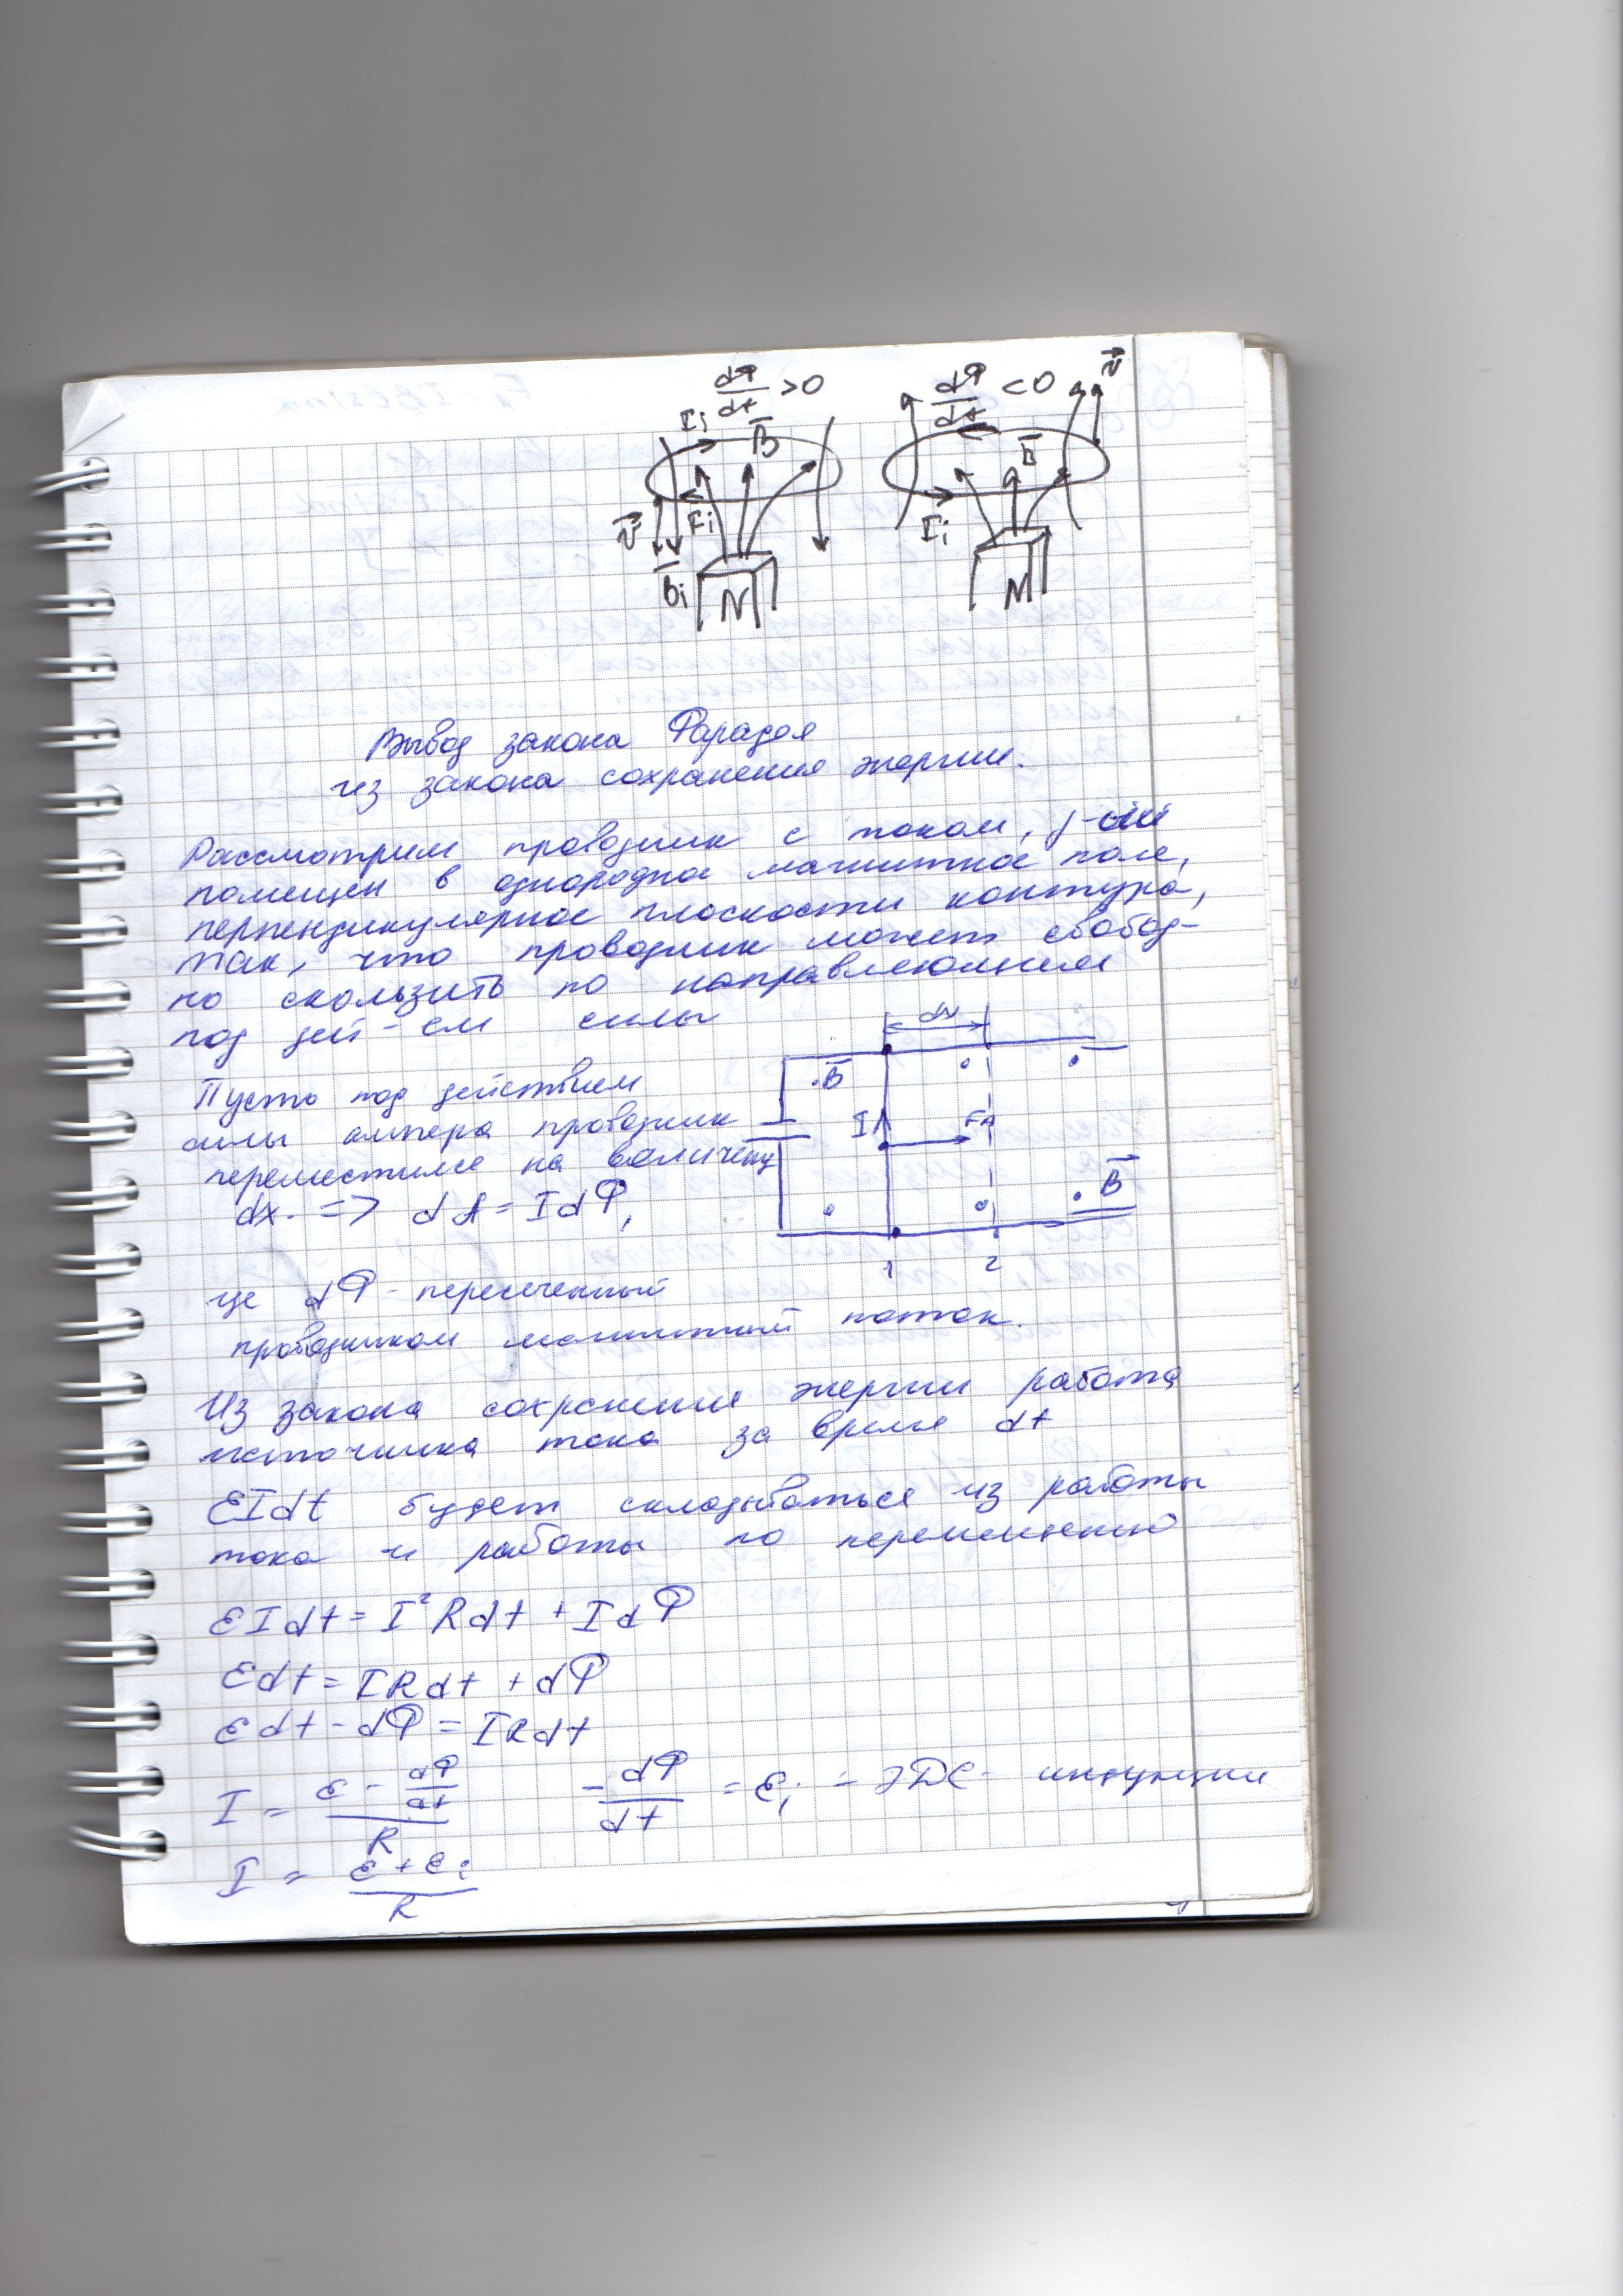 dФ/dt > 0
dФ/dt < 0
v
Ii
B
B
v
Ii
Ii
Bi
N
N
Вывод закона Фарадея
из закона сохранения энергии.
Рассмотрим проводник с током,
помещен в однородное магнитное поле,
перпендикулярное плоскости контура,
так, что проводник может свобод-
но скользить по направляющим
под дей-ем силы
Пусть под действием
силы ампера проводник
переместился на величину
dx. => dA = IdФ,
dx
B
I
FA
B
1
2
где dФ - пересеченный
проводником магнитный поток.
Из закона сохранения энергии работа
источника тока за время dt
εIdt будет складываться из работы
тока и работы по перемещению
εIdt = I²Rdt + IdФ
εdt = IRdt + dФ
εdt - dФ = IRdt
I = (ε - dФ/dt)/R    - dФ/dt = εi - ЭДС индукции
I = (ε + εi)/R